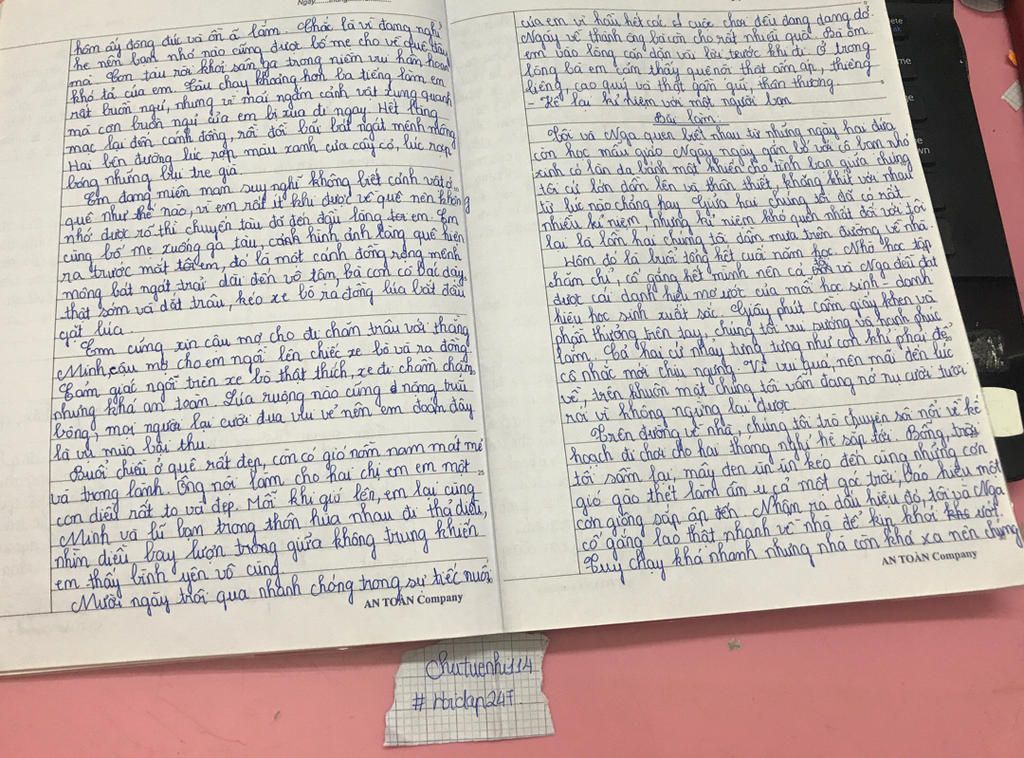 Ngày.......tháng
hôm ấy đông đúc và ồn ã lắm. Chắc là vì đang nghỉ
hè nên bạn nhỏ nào cũng được bố mẹ cho về quê đây
mà. Con tàu rời khỏi sân ga trong niềm vui hân hoan
khó tả của em. Tàu chạy khoảng hơn ba tiếng làm em
rất buồn ngủ, nhưng vì mải ngắm cảnh vật xung quanh
mà cơn buồn ngủ của em bị xua đi ngay. Hết làng
mạc lại đến cánh đồng, rồi đồi bãi bát ngát mênh mông.
Hai bên đường lúc rợp màu xanh của cây cỏ, lúc rợp
bóng những lũy tre già.
Em đang miên man suy nghĩ không biết cảnh vật ở
quê như thế nào, vì em rất ít khi được về quê nên không
nhớ được rõ thì chuyến tàu đã đến đậu làng em. Em
cùng bố mẹ xuống ga tàu, cảnh hình ảnh làng quê hiện
ra trước mắt em, đó là một cánh đồng rộng mênh
mông bát ngát trải dài đến vô tận, bà con cô bác dậy
thật sớm và dắt trâu, kéo xe bò ra đồng lúa bắt đầu
gặt lúa.
Em cũng xin cậu mợ cho đi chăn trâu với thằng
Minh, cậu mợ cho em ngồi lên chiếc xe bò và ra đồng.
Cảm giác ngồi trên xe bò thật thích, xe đi chầm chậm
nhưng khá an toàn. Lúa ruộng nào cũng nặng trĩu
bông, mọi người lại cười đùa vui vẻ nên em đoán đây
là vụ mùa bội thu.
Buổi chiều ở quê rất đẹp, còn có gió nồm nam mát mẻ
và trong lành. Ông nội làm cho hai chị em em một
con diều rất to và đẹp. Mỗi khi gió lên, em lại cùng
Minh và lũ bạn trong thôn hùa nhau đi thả diều,
nhìn diều bay lượn trong giữa không trung khiến
em thấy bình yên vô cùng.
Mười ngày trôi qua nhanh chóng trong sự tiếc nuối
AN TOÀN Company
của em vì hầu hết các cuộc chơi đều đang dang dở.
Ngày về thành ông bà còn cho rất nhiều quà. Bà ôm
em vào lòng căn dặn vài lời trước khi đi. Ở trong
lòng bà em cảm thấy quê nội thật ấm áp, thiêng
liêng, cao quý và thật gần gũi, thân thương.
- Kể lại kỉ niệm với một người bạn
Bài làm:
Tôi và Nga quen biết nhau từ những ngày hai đứa
còn học mẫu giáo. Ngày ngày gắn bó với cô bạn nhỏ
xinh có làn da bánh mật khiến cho tình bạn giữa chúng
tôi cứ lớn dần lên và thân thiết, khăng khít với nhau
từ lúc nào chẳng hay. Giữa hai chúng tôi đã có rất
nhiều kỉ niệm, nhưng kỉ niệm khó quên nhất đối với tôi
lại là lần hai chúng tôi dầm mưa trên đường về nhà.
Hôm đó là buổi tổng kết cuối năm học. Nhờ học tập
chăm chỉ, cố gắng hết mình nên cả tôi và Nga đều đạt
được cái danh hiệu mơ ước của mỗi học sinh - danh
hiệu học sinh xuất sắc. Giây phút cầm giấy khen và
phần thưởng trên tay, chúng tôi vui sướng và hạnh phúc
lắm. Cả hai cứ nhảy tưng tưng như con khỉ phải để
cô nhắc mới chịu ngưng. Vì vui quá, nên mãi đến lúc
về, trên khuôn mặt chúng tôi vẫn đang nở nụ cười tươi
rói vì không ngừng lại được.
Trên đường về nhà, chúng tôi trò chuyện sôi nổi về kế
hoạch đi chơi cho hai tháng nghỉ hè sắp tới. Bỗng, trời
tối sầm lại, mây đen ùn ùn kéo đến cùng những cơn
gió gào thét làm ầm ụ cả một góc trời, báo hiệu một
cơn giông sắp ập đến. Nhận ra dấu hiệu đó, tôi và Nga
cố gắng lao thật nhanh về nhà để kịp khỏi ướt.
Tuy chạy khá nhanh nhưng nhà còn khá xa nên chúng
AN TOÀN Company
chutuenhi114
#hoidap247